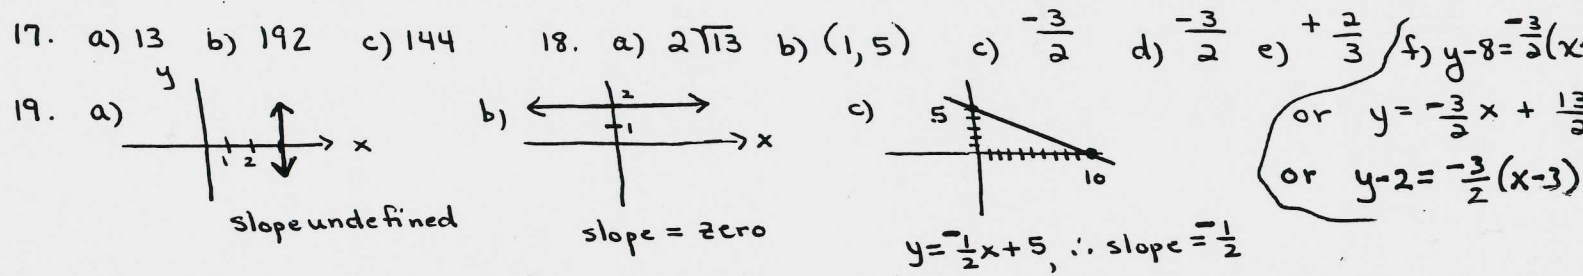 17. a) 13 b) 192 c) 144 18. a) 2√13 b) (1, 5) c) -3/2 d) -3/2 e) +2/3 f) y-8=-3/2(x-
or y=-3/2x+13/2
or y-2=-3/2(x-3)
19. a) y x 1 2
slope undefined
b) 2 1 x
slope = zero
c) 5 10
y=-1/2x+5, ∴ slope=-1/2